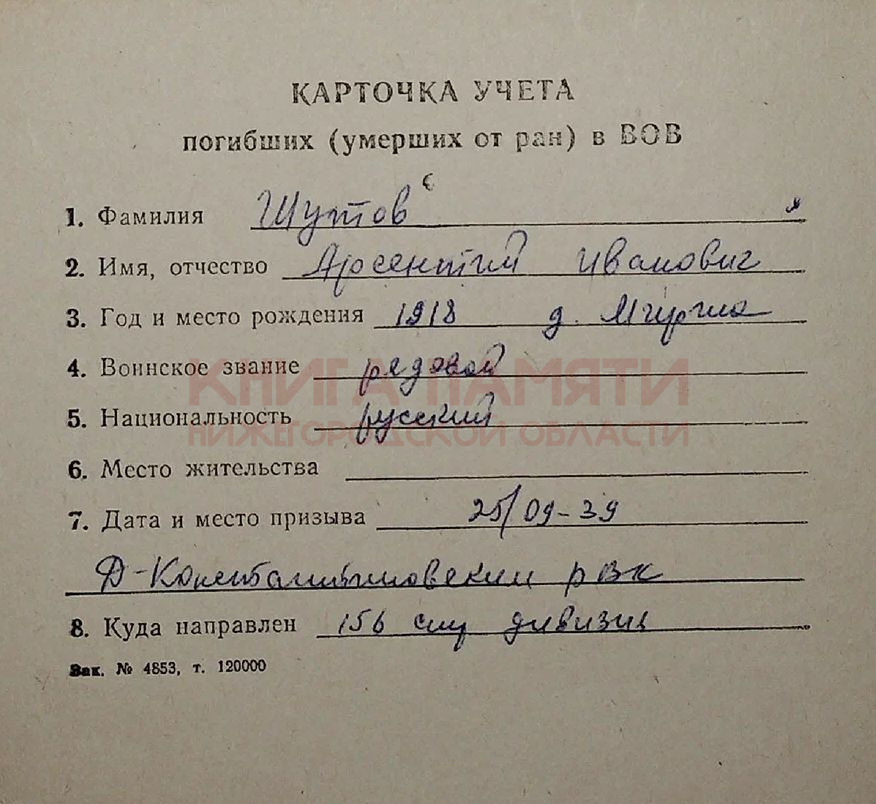 КАРТОЧКА УЧЕТА
погибших (умерших от ран) в ВОВ
1. Фамилия Шутов
2. Имя, отчество Арсентий Иванович
3. Год и место рождения 1918 д.
4. Воинское звание рядовой
5. Национальность русский
КНИГА ПАМЯТИ
НИЖЕГОРОДСКОЙ ОБЛАСТИ
6. Место жительства
7. Дата и место призыва 25/09-39
Д-Константиновский рвк
8. Куда направлен 156 дивизия
Зак. № 4853, т. 120000